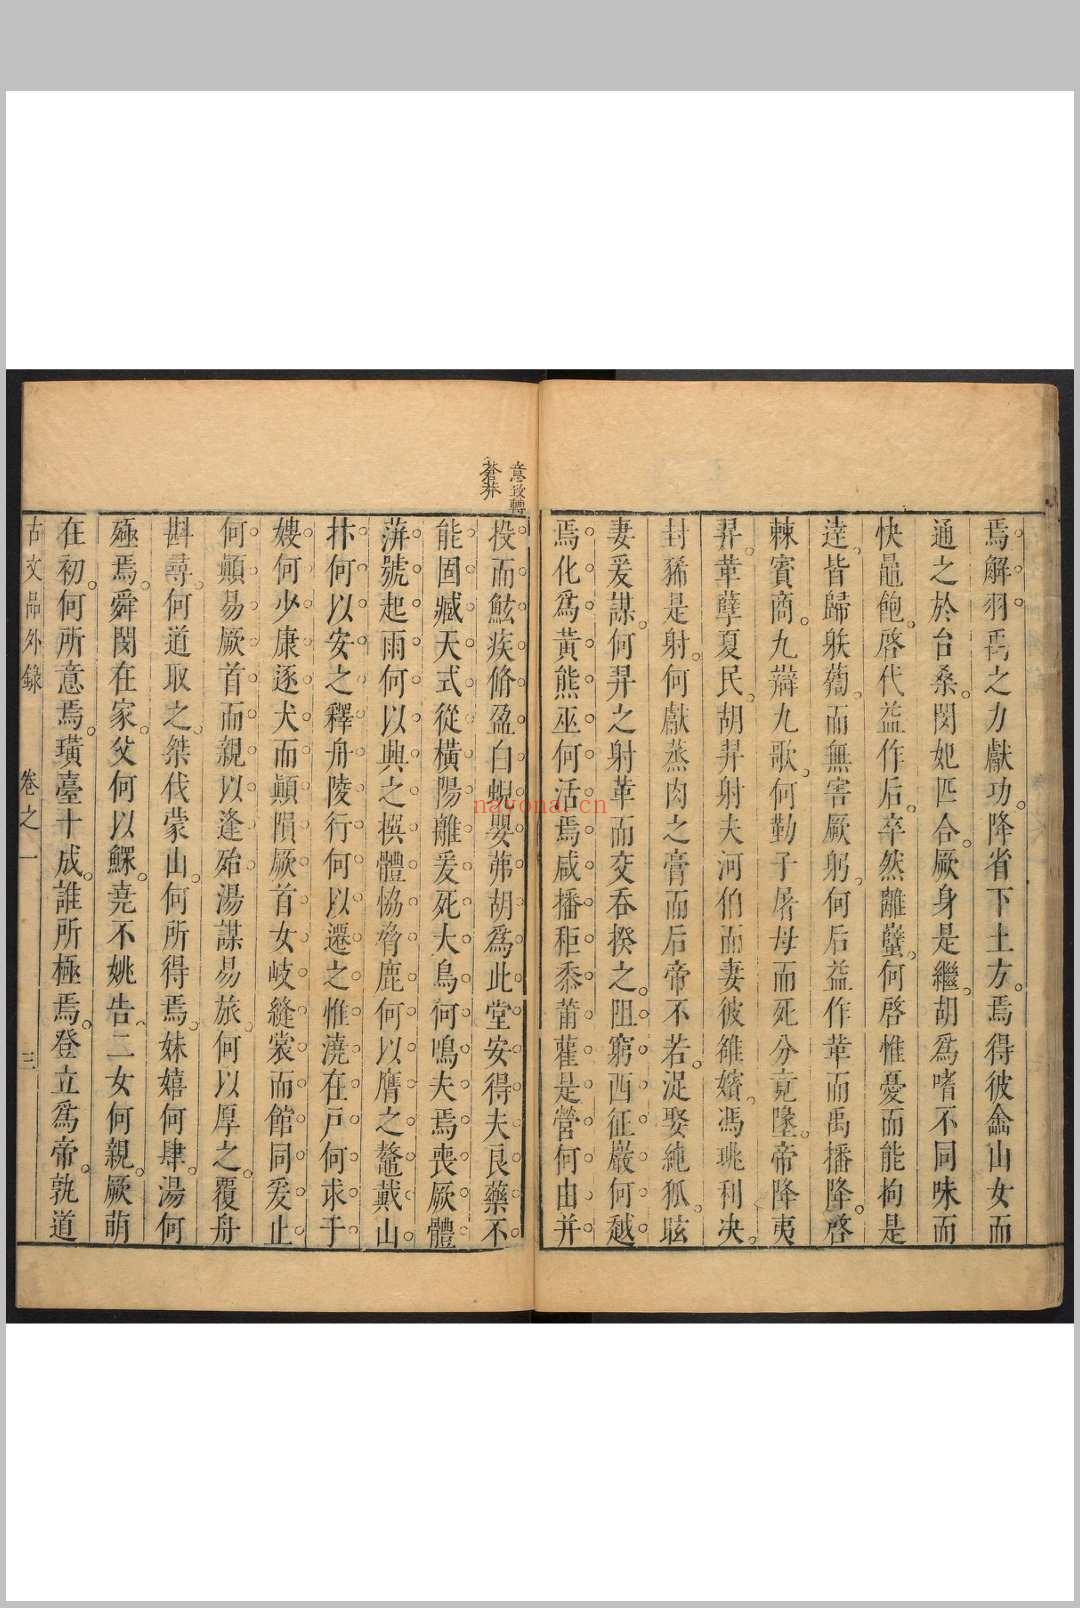 焉解羽禹之力獻功降省下土方焉得彼嵞山女而
通之於台桑閔妃匹合厥身是繼胡爲嗜不同味而
快鼂飽啓代益作后卒然離蠥何啓惟憂而能拘是
達皆歸䠶𥷚而無害厥躬何后益作革而禹播降啓
棘賓商九辯九歌何勤子屠母而死分竟墜帝降夷
羿革孽夏民胡羿射夫河伯而妻彼雒嬪馮珧利决
封豨是射何獻蒸肉之膏而后帝不若浞娶純狐眩
妻爰謀何羿之射革而交吞揆之阻窮西征巖何越
焉化爲黃熊巫何活焉咸播秬黍莆雚是營何由并
意致轉
蒼莽
投而鮌疾脩盈白蜺嬰茀胡爲此堂安得夫良藥不
能固臧天式從橫陽離爰死大鳥何鳴夫焉喪厥體
蓱號起雨何以興之撰體協脅鹿何以膺之鼇戴山
抃何以安之釋舟陵行何以遷之惟澆在戶何求于
嫂何少康逐犬而顚隕厥首女岐縫裳而館同爰止
何顚易厥首而親以逢殆湯謀易旅何以厚之覆舟
斟尋何道取之桀伐蒙山何所得焉妹嬉何肆湯何
殛焉舜閔在家父何以鱞堯不姚告二女何親厥萌
在初何所意焉璜臺十成誰所極焉登立爲帝孰道
古文品外錄
卷之一
三
nayona.cn